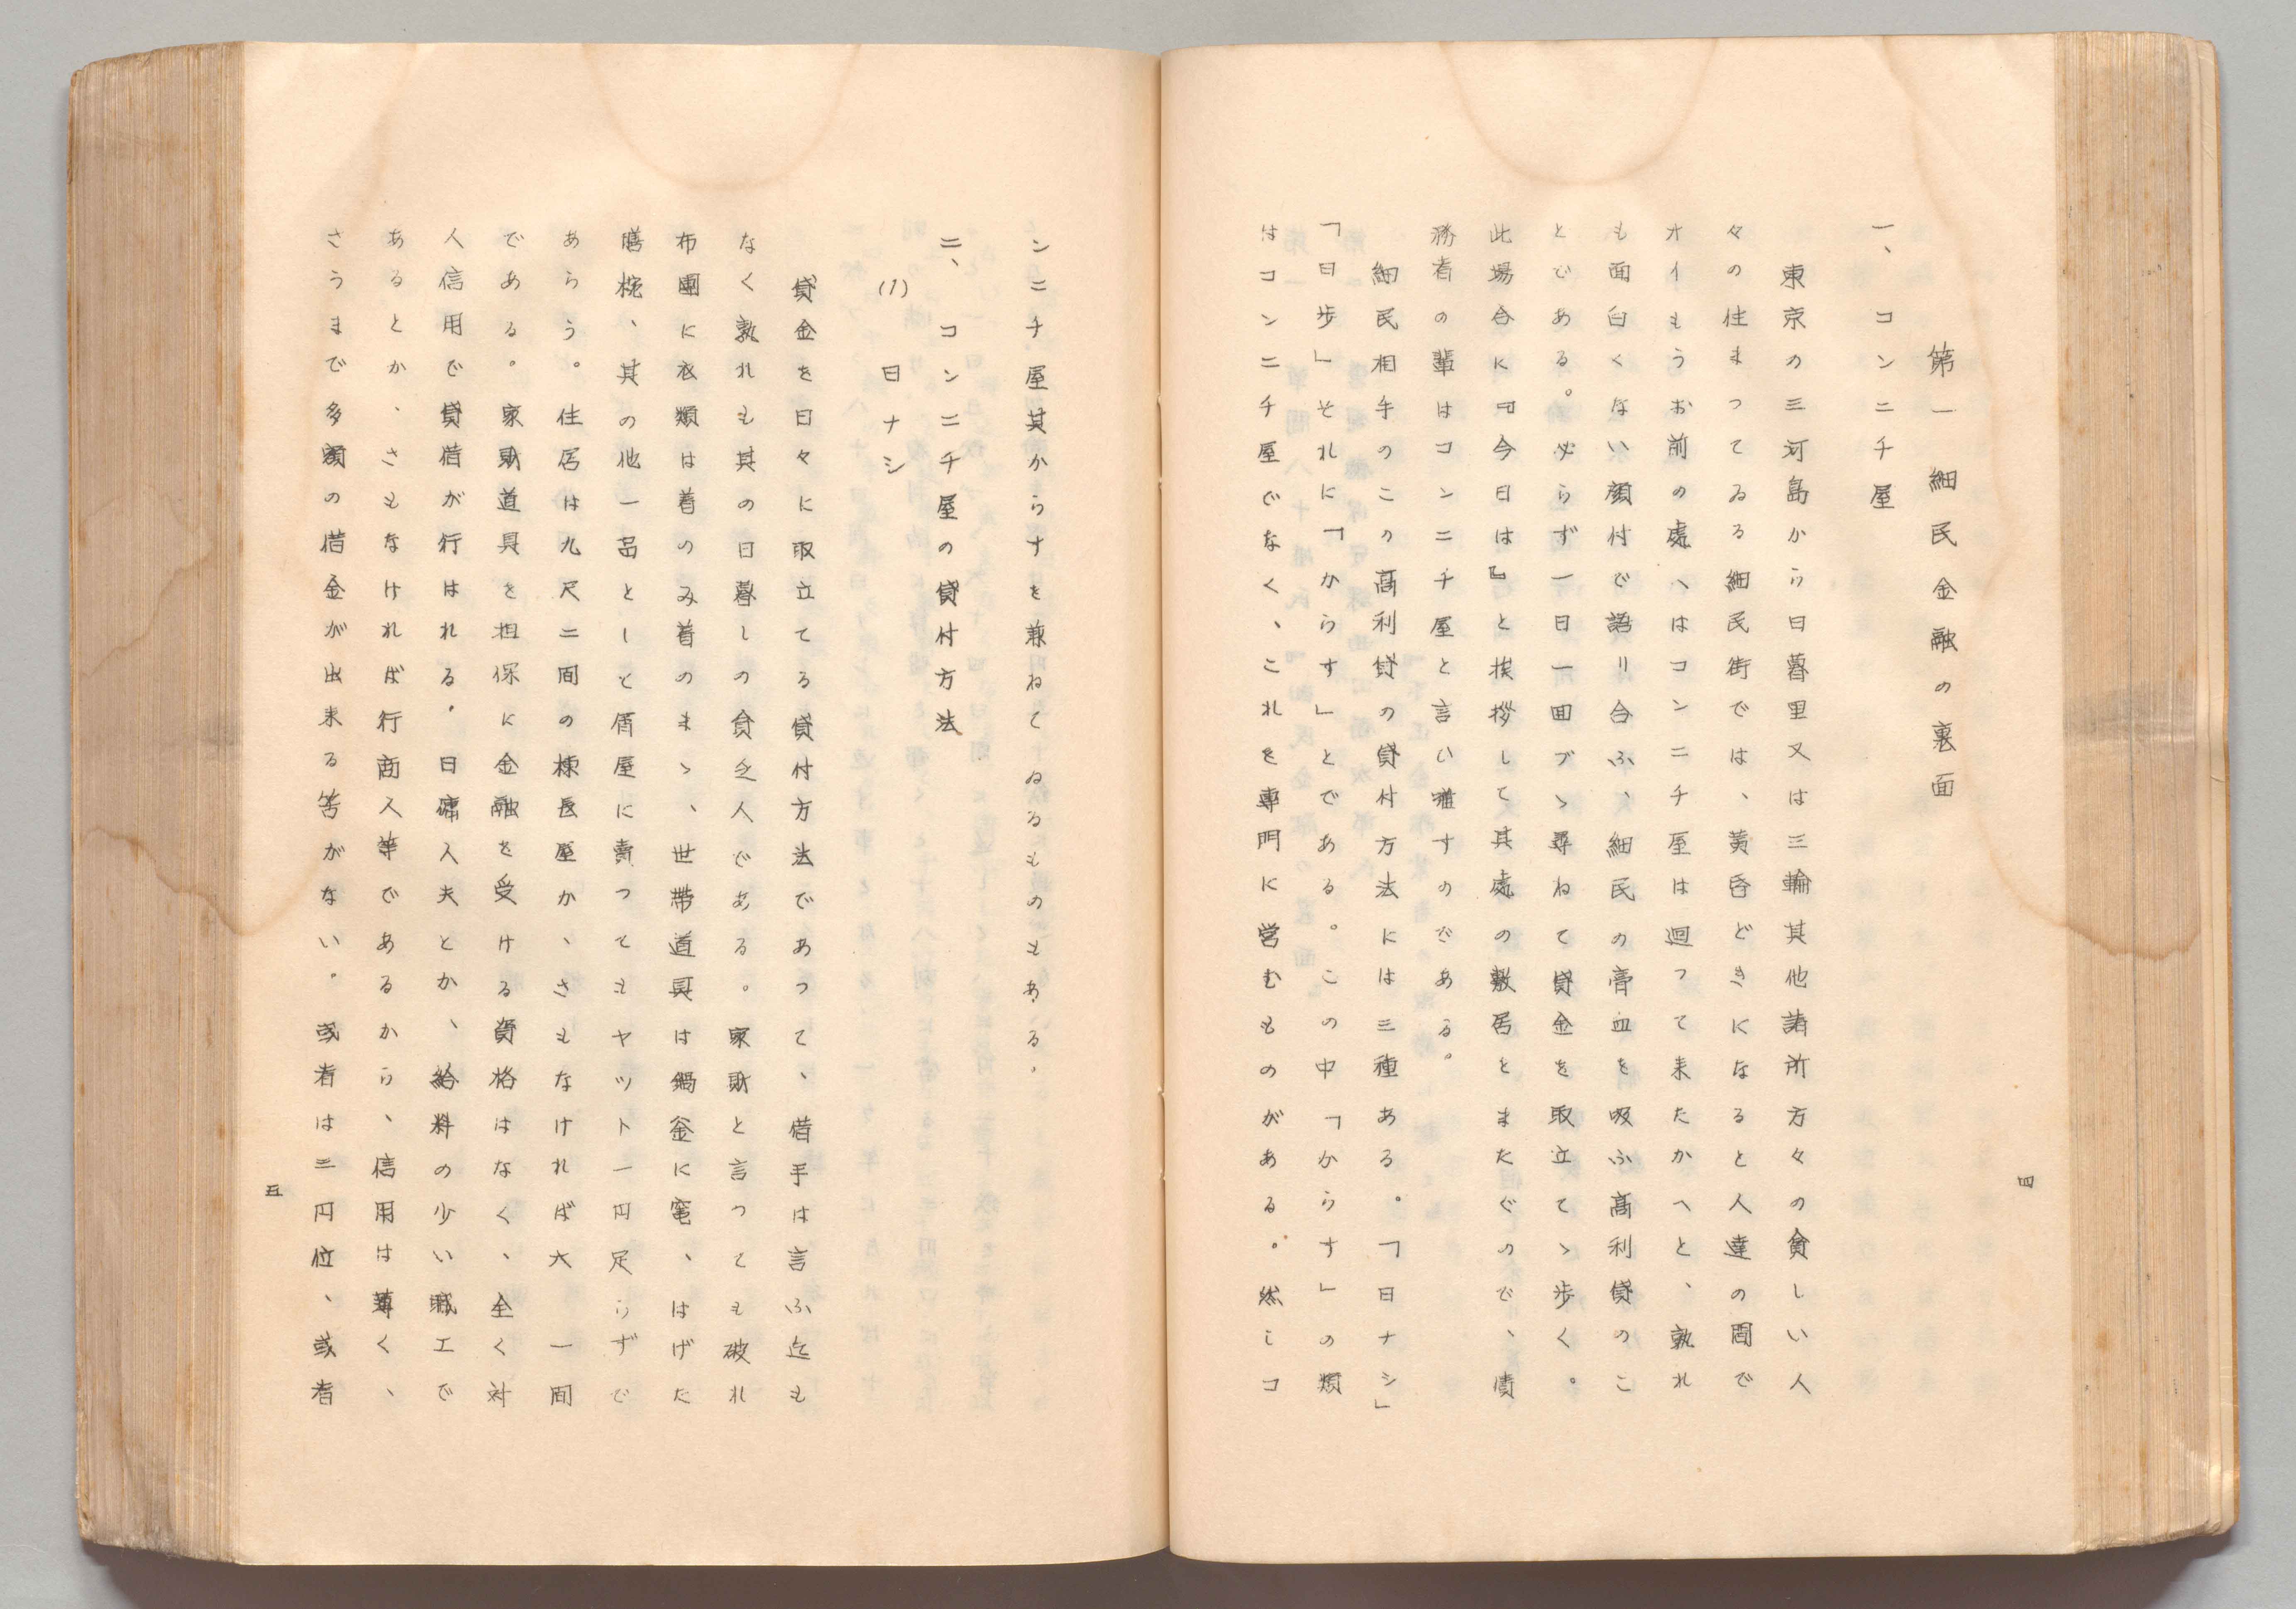 第一　細民金融の裏面
一、コンニチ屋
東京の三河島から日暮里又は三輪其他諸所方々の貧しい人
々の住まつてゐる細民街では、黄昏どきになると人達の間で
オイもうお前の處へはコンニチ屋は廻つて来たかへと、孰れ
も面白くない顔付で語り合ふ、細民の膏血を吸ふ高利貸のこ
とである。必らず一日一囬ブゝ尋ねて貸金を取立てゝ歩く。
此場合に『今日は』と挨拶して其處の敷居とまたぐので、債
務者の輩はコンニチ屋と言い囃すのである。
細民相手のこの高利貸の貸付方法には三種ある。「日ナシ」
「日歩」それに「からす」とである。この中「からす」の類
はコンニチ屋でなく、これを専門に営むものがある。然しコ
四
ンニチ屋其からすを兼ねてゐるものもある、
二、コンニチ屋の貸付方法
(1)　日ナシ
貸金を日々に取立てる貸付方法であつて、借手は言ふ迄も
なく孰れも其の日暮しの貧乏人である。家財と言つても破れ
布團に衣類は着のみ着のまゝ、世帯道具は鍋釜に竃、はげた
膳椀、其の他一品として屑屋に賣つてもヤツト一円足らずで
あらう。住居は九尺二間の棟長屋か、さもなければ大一間
である。家財道具を担保に金融を受ける資格はなく、全く対
人信用で貸借が行はれる。日傭人夫とか、給料の少い職工で
あるとか、さもなければ行商人等であるから、信用は薄く、
さうまで多額の借金が出来る筈がない。或者は三円位、或者
五